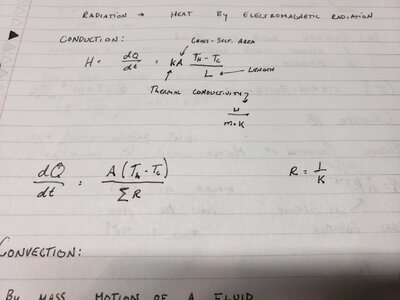 RADIATION → HEAT BY ELECTROMAGNETIC RADIATION
CONDUCTION:
CROSS-SECT. AREA
H = dQ/dt = kA (T_H - T_C)/L ← LENGTH
THERMAL CONDUCTIVITY
W/m·K
dQ/dt = A(T_h - T_c)/ΣR
R = 1/K
CONVECTION:
BY MASS MOTION OF A FLUID